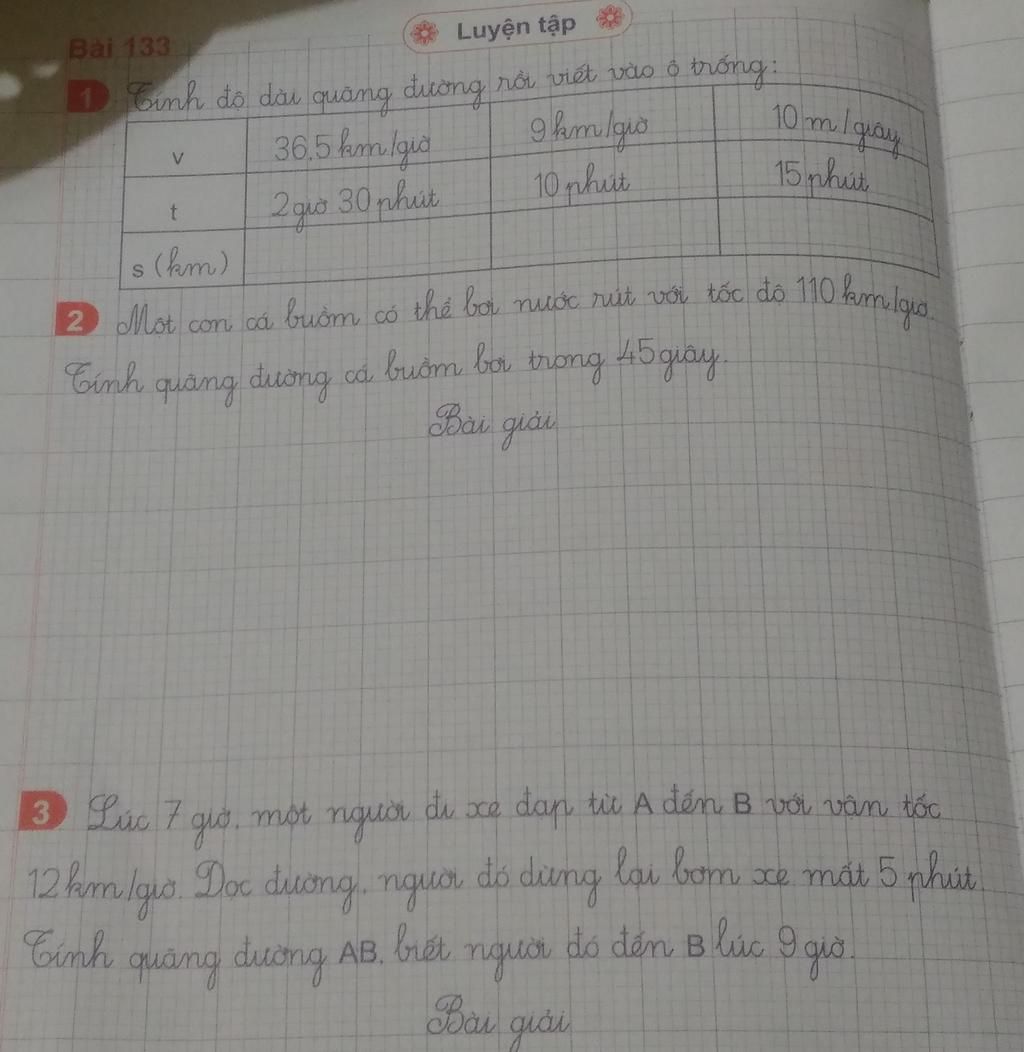 Luyện tập
Bài 133
1 Tính độ dài quãng đường rồi viết vào ô trống:
v 36,5 km/giờ 9 km/giờ 10 m/giây
t 2 giờ 30 phút 10 phút 15 phút
s (km)
2 Một con cá buồm có thể bơi nước rút với tốc độ 110 km/giờ.
Tính quãng đường cá buồm bơi trong 45 giây.
Bài giải
3 Lúc 7 giờ, một người đi xe đạp từ A đến B với vận tốc
12 km/giờ. Dọc đường, người đó dừng lại bơm xe mất 5 phút.
Tính quãng đường AB, biết người đó đến B lúc 9 giờ.
Bài giải